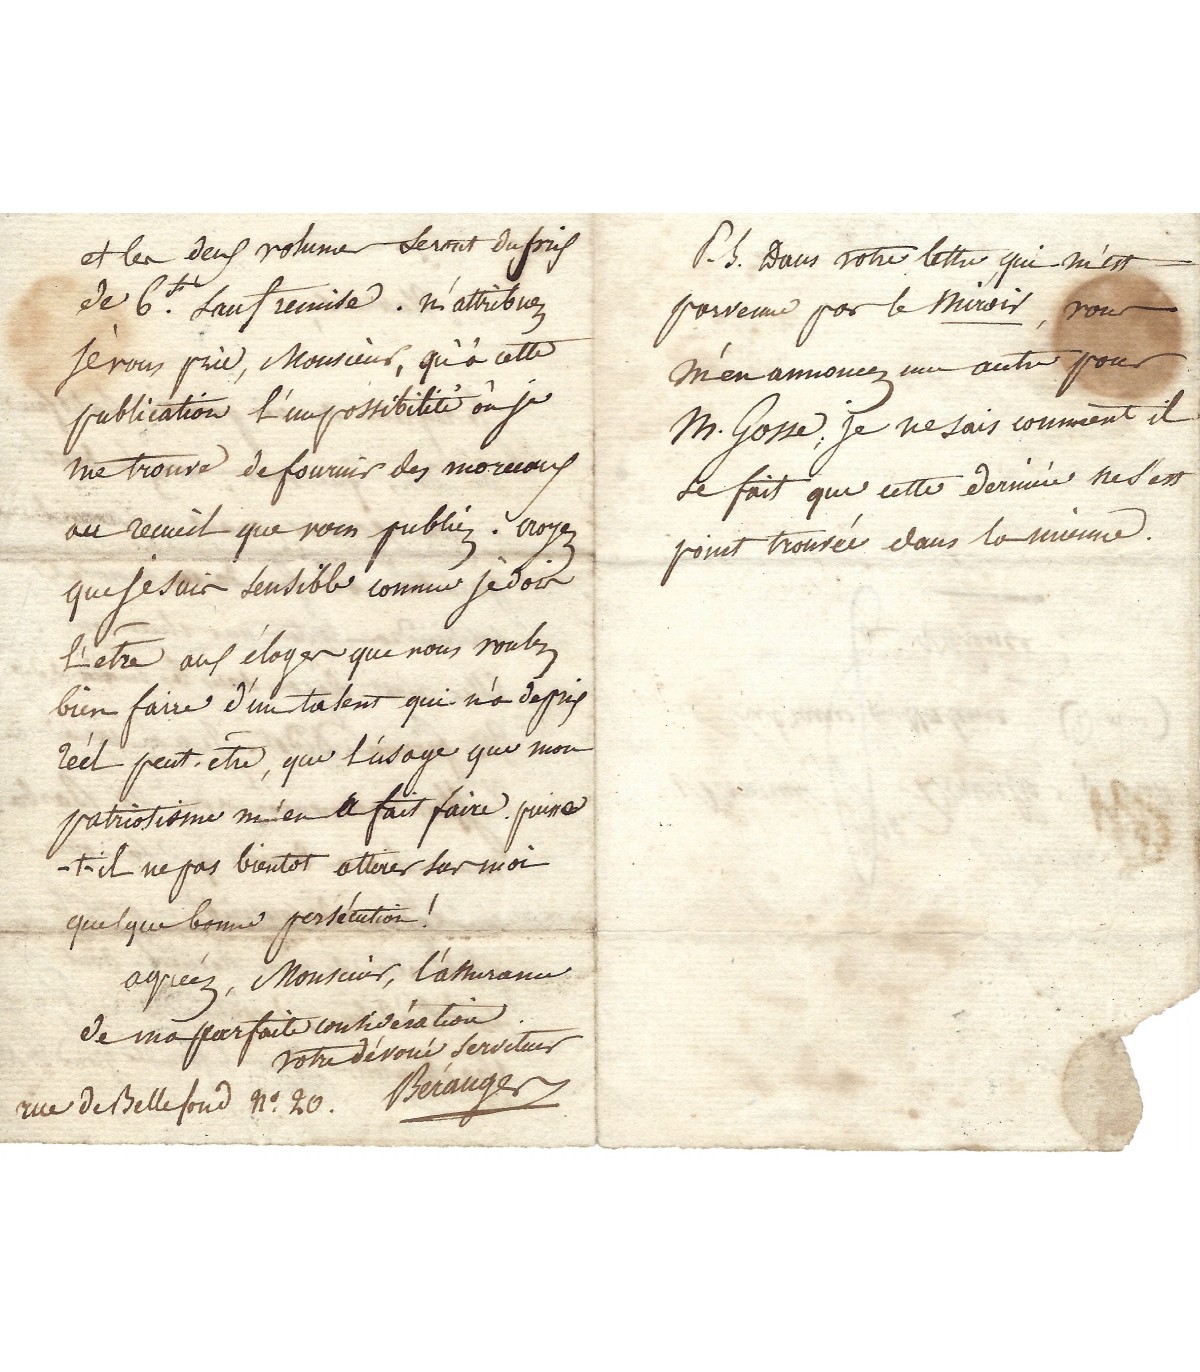 et les deux volumes seront du prix
de 6.ff sauf remise. n'attribuez
je vous prie, Monsieur, qu'à cette
publication l'impossibilité où je
me trouve de fournir des morceaux
au recueil que vous publiez. croyez
que je suis sensible comme je dois
l'être aux éloges que vous voulez
bien faire d'un talent qui n'a de prix
réel peut-être, que l'usage que mon
patriotisme m'en a fait faire. puisse
-t-il ne pas bientot attirer sur moi
quelque bonne persécution!
agréez, Monsieur, l'assurance
de ma parfaite considération.
votre dévoué serviteur
Béranger
rue de Bellefond N.o 20.
P.S. Dans votre lettre qui m'est
parvenue par le Miroir, vous
m'en annoncez une autre pour
M. Gosse; je ne sais comment il
se fait que cette dernière ne s'est
point trouvée dans la mienne.